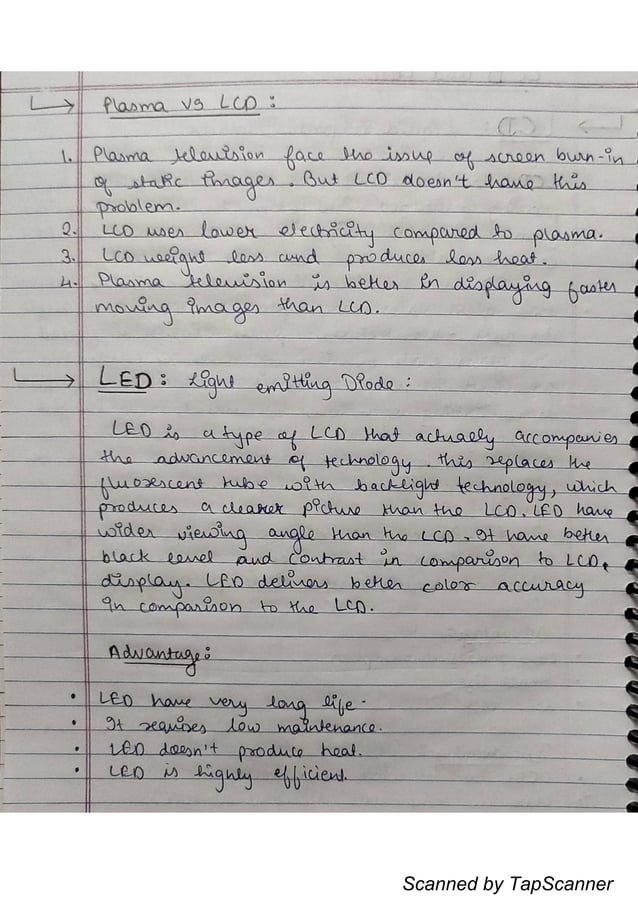 Plasma vs LCD :
1. Plasma television face the issue of screen burn-in
of static images. But LCD doesn't have this
problem.
2. LCD uses lower electricity compared to plasma.
3. LCD weight less and produces less heat.
4. Plasma television is better in displaying faster
moving images than LCD.
LED : Light emitting Diode :
LED is a type of LCD that actually accompanies
the advancement of technology. This replaces the
fluorescent tube with backlight technology, which
produces a clearer picture than the LCD. LED have
wider viewing angle than the LCD. It have better
black level and contrast in comparison to LCD
display. LED delivers better color accuracy
in comparison to the LCD.
Advantage:
• LED have very long life.
• It requires low maintenance.
• LED doesn't produce heat.
• LED is highly efficient.
Scanned by TapScanner